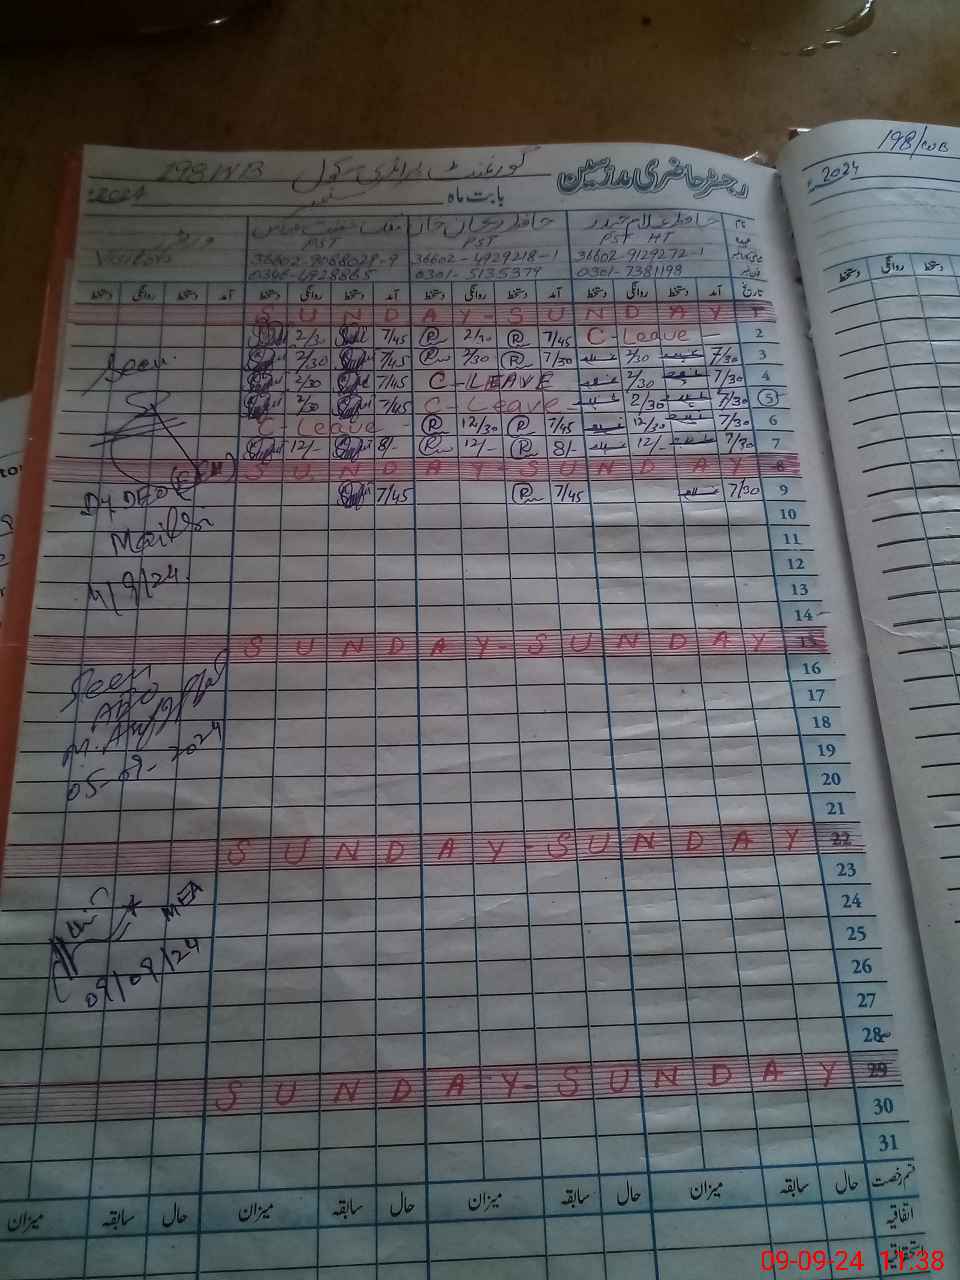 198/WB
2024
رجسٹر حاضری مدرسین
گورنمنٹ پرائمری سکول 198/WB
بابت ماہ ستمبر 2024ء
نام
حافظ غلام حیدر
حافظ ریحان خان
PST HT
PST
PST
36602-9129272-1
36602-4929218-1
36602-9068028-9
Visitors
0301-7381198
0301-5135379
0346-6928865
تاریخ آمد دستخط روانگی دستخط آمد دستخط روانگی دستخط آمد دستخط روانگی دستخط آمد دستخط روانگی دستخط
1 SUNDAY-SUNDAY
2 C-Leave 7/45 2/30 7/45 2/30
3 7/30 2/30 7/30 2/30 7/45 2/30
4 7/30 2/30 C-LEAVE 7/45 2/30
5 7/30 2/30 C-Leave 7/45 2/30
6 7/30 12/30 7/45 12/30 C-Leave
7 7/30 12/- 8/- 12/- 8/- 12/-
8 SUNDAY-SUNDAY
9 7/30 7/45 7/45
10
11
12
13
14
15 SUNDAY-SUNDAY
16
17
18
19
20
21
22 SUNDAY-SUNDAY
23
24
25
26
27
28
29 SUNDAY-SUNDAY
30
31
Seen
Dy DEO
Mailsi
4/9/24
Seen
AEO
05-09-2024
MEA
09/09/24
قسم رخصت حال سابقہ میزان حال سابقہ میزان حال سابقہ میزان حال سابقہ میزان
اتفاقیہ
استحقاقیہ
دستخط روانگی دستخط
09-09-24 11:38